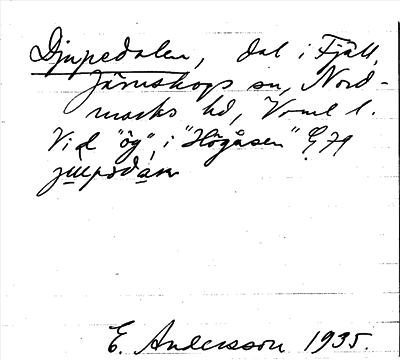 Djupedalen, dal i Fjäll,
Järnskogs sn, Nord-
marks hd, Vrml l.
Vid "ög", i "Högåsen" G 79
E. Andersson 1935.